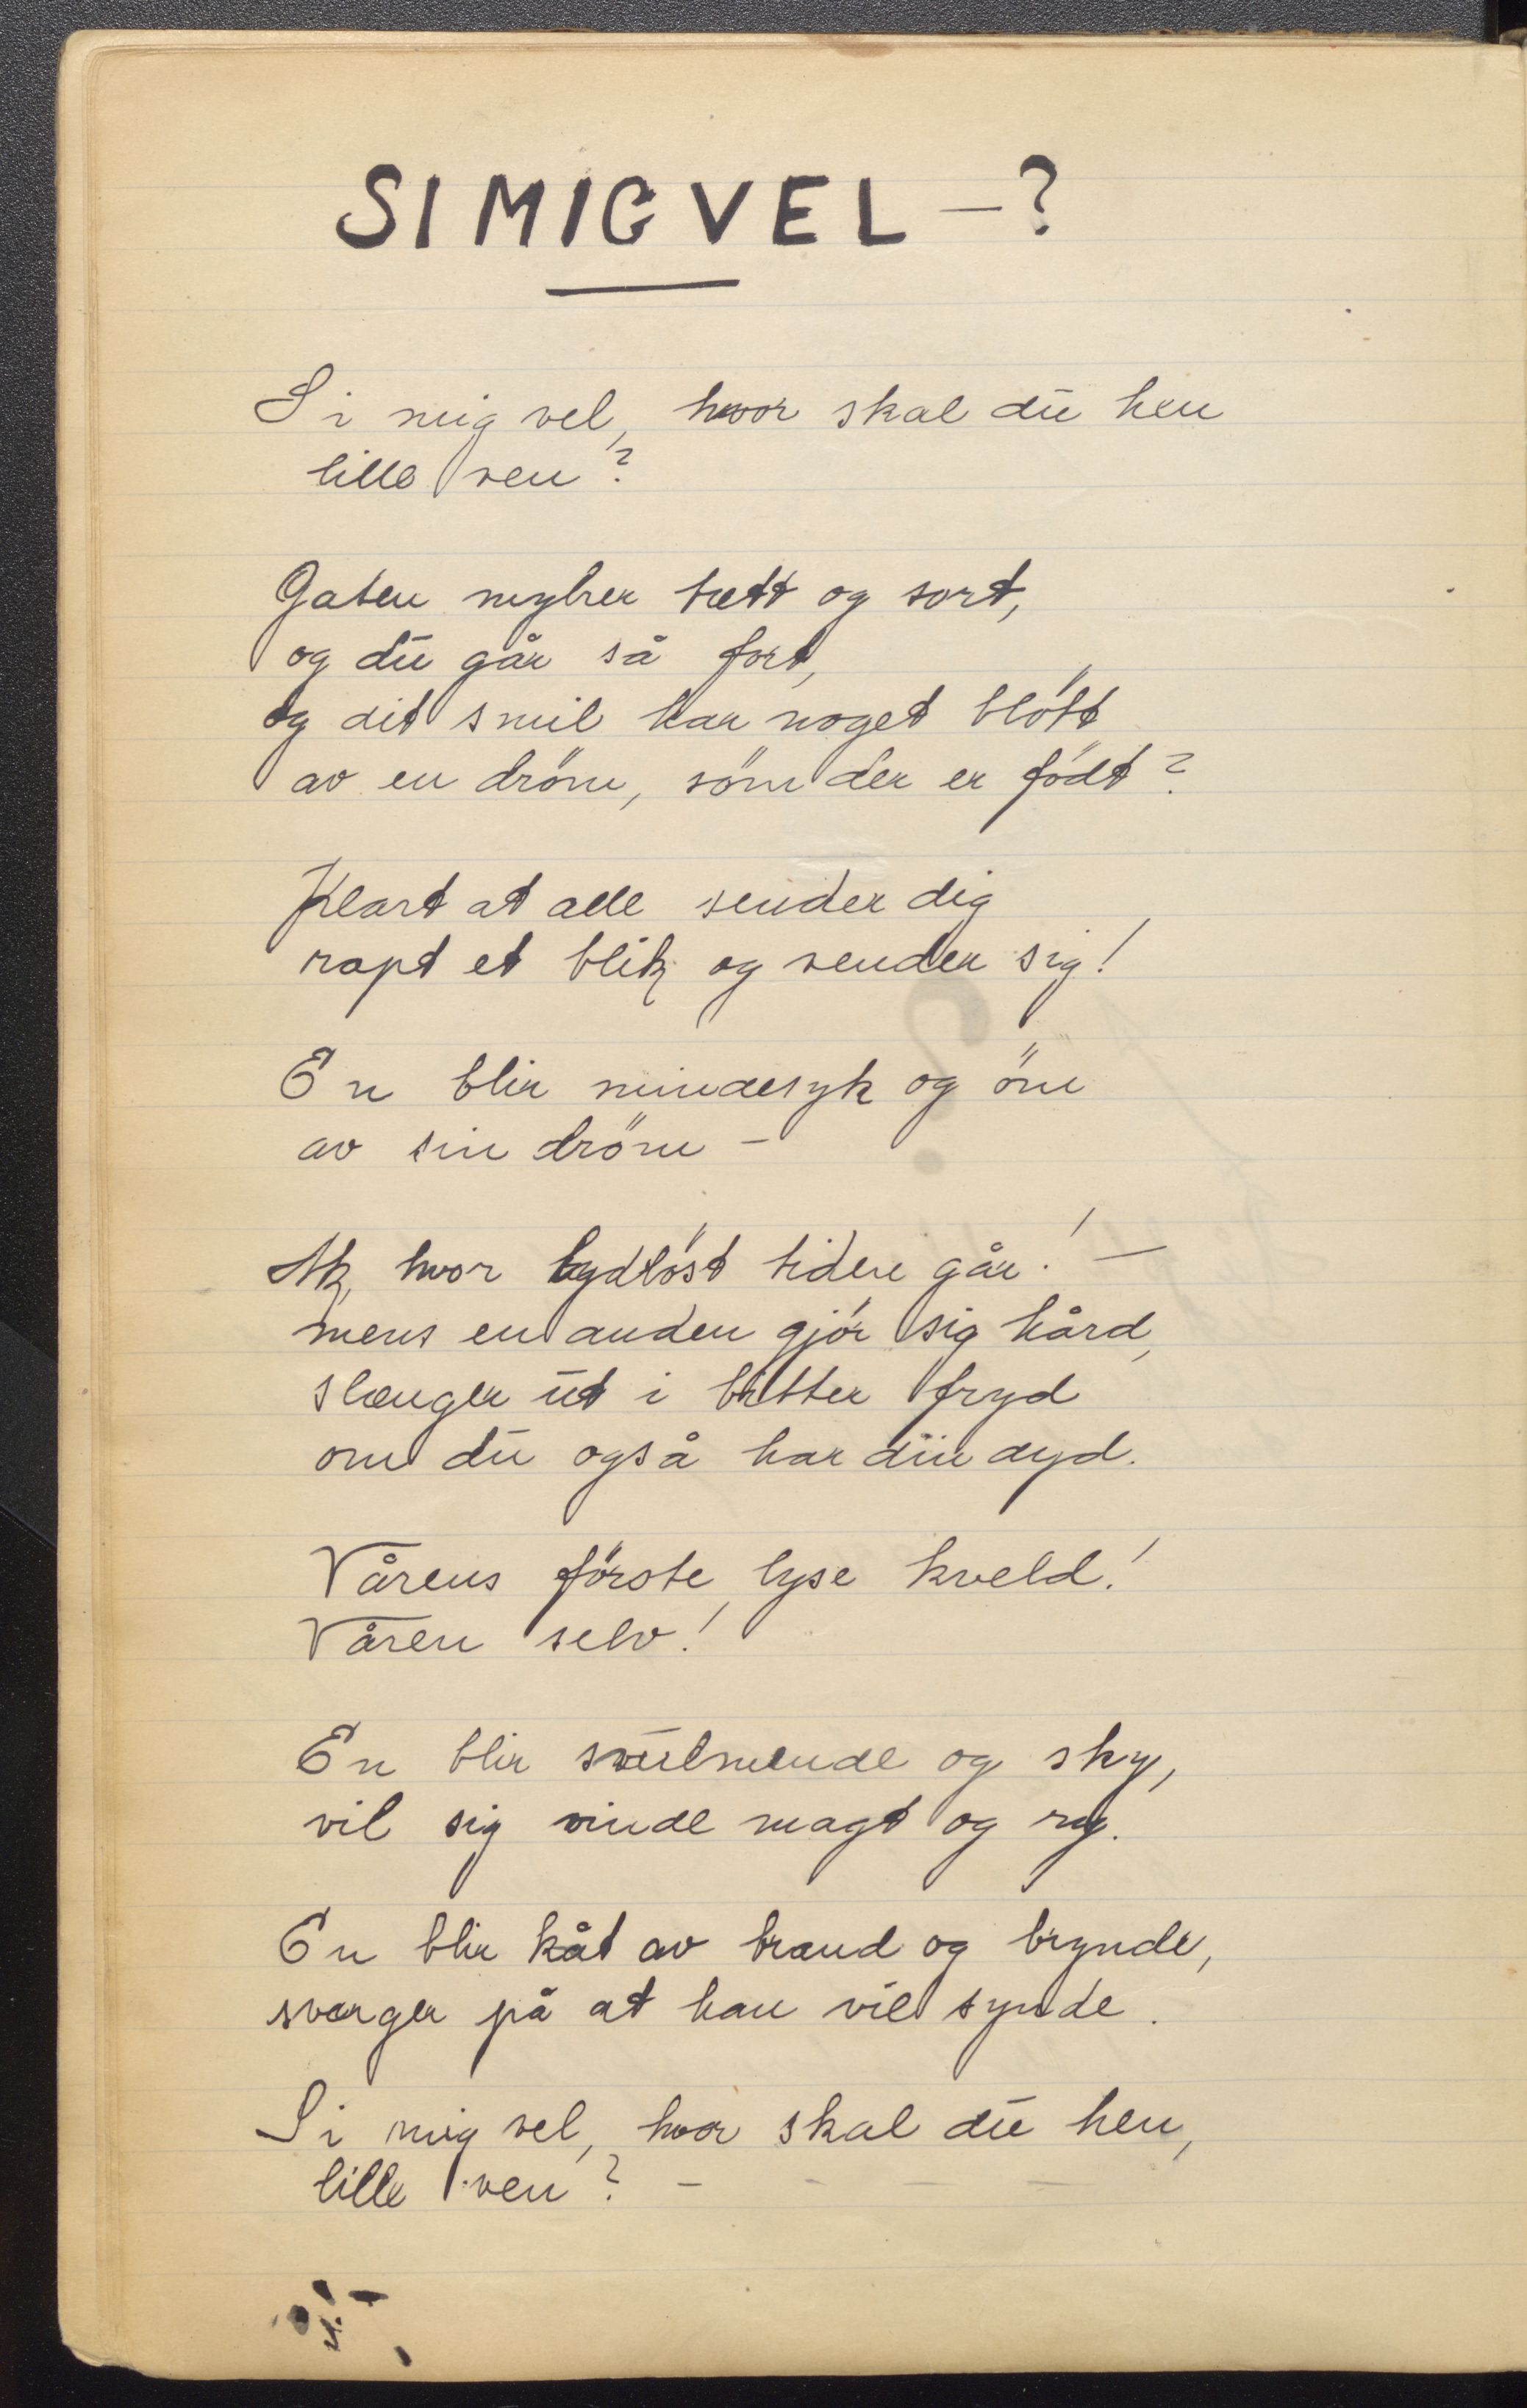 SI MIG VEL – ?
Si mig vel, hvor skal du hen
lille ven?
Gaten myldrer tætt og sort,
og du går så fort,
og dit smil har noget blött
av en dröm, som der er födt?
Klart at alle sender dig
rapt et blik og vender sig!
En blir mindesyk og öm
av sin dröm –
Ak, hvor lydlöst tiden går! –
mens en anden gjör sig hård,
slænger ut i bitter fryd
om du også har din dyd.
Vårens förste, lyse kveld!
Våren selv!
En blir svulmende og sky,
vil sig vinde magt og ry.
En blir kåt av brand og brynde,
sværger på at han vil synde.
Si mig vel, hvor skal du hen,
lille ven? – – – –